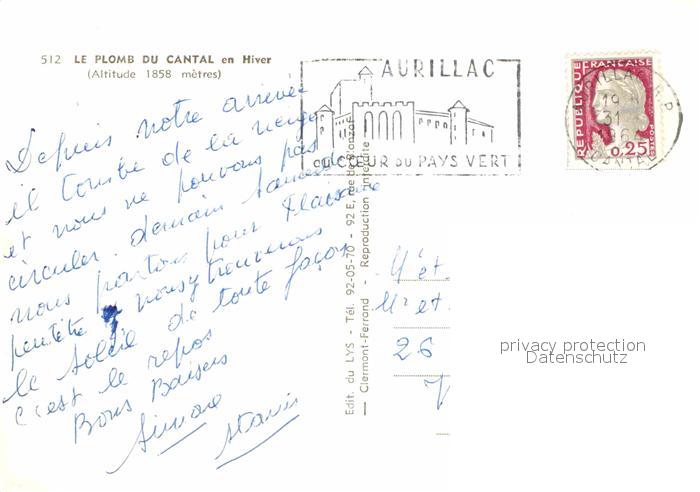 512 LE PLOMB DU CANTAL en Hiver
(Altitude 1858 mètres)
AURILLAC
AU CŒUR DU PAYS VERT
REPUBLIQUE FRANÇAISE
0,25
POSTES
19 H
31
CANTAL
Depuis notre arrivée
il tombe de la neige
et nous ne pouvons pas
circuler. demain samedi
nous partons pour
peutêtre nousy trouverons
le soleil de toute façon
c'est le repos
Bons Baisers
Simone
Edit. du LYS - Tél. 92-05-70 - 92 E, rue de
Clermont-Ferrand - Reproduction interdite
M et.
M et.
26
privacy protection
Datenschutz